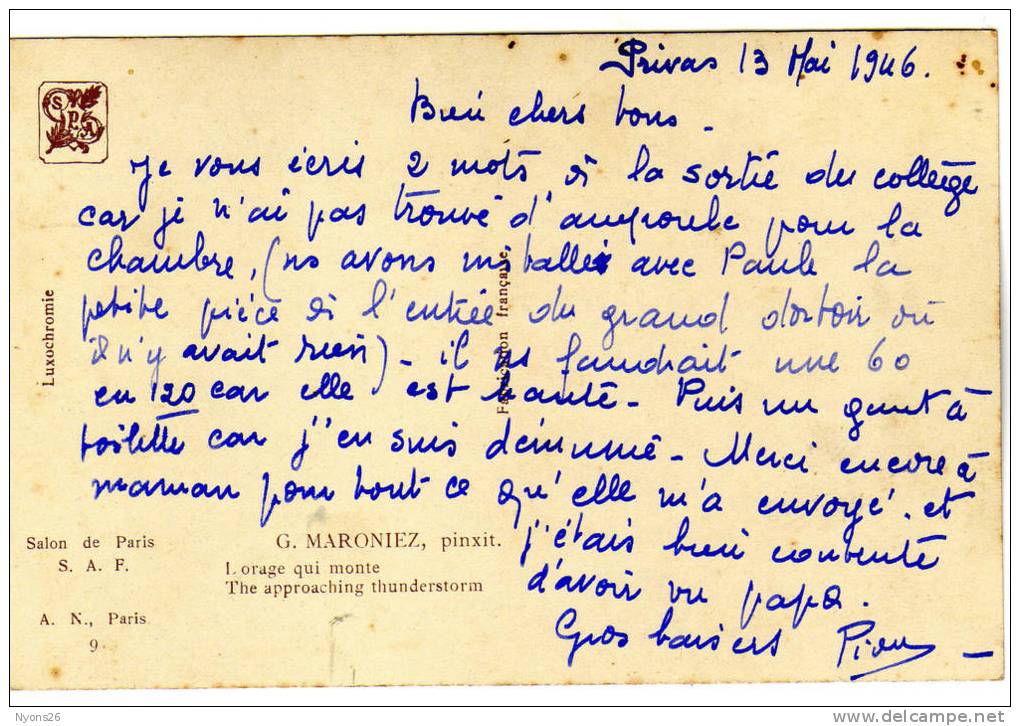 Privas 13 Mai 1946.
Bien chers tous -
Je vous écris 2 mots à la sortie du collège
car je n'ai pas trouvé d'ampoule pour la
chambre, (ns avons installé avec Paule la
petite pièce à l'entrée du grand dortoir où
il n'y avait rien) - il ns faudrait une 60
en 120 car elle est haute - Puis un gant à
toilette car j'en suis démunie - Merci encore à
maman pour tout ce qu'elle m'a envoyé. et
j'étais bien contente
d'avoir vu papa.
Gros baisers
SPA
Luxochromie
Fabrication française
Salon de Paris
S. A. F.
A. N., Paris
9
G. MARONIEZ, pinxit.
L orage qui monte
The approaching thunderstorm
Nyons26
http://www.delcampe.net